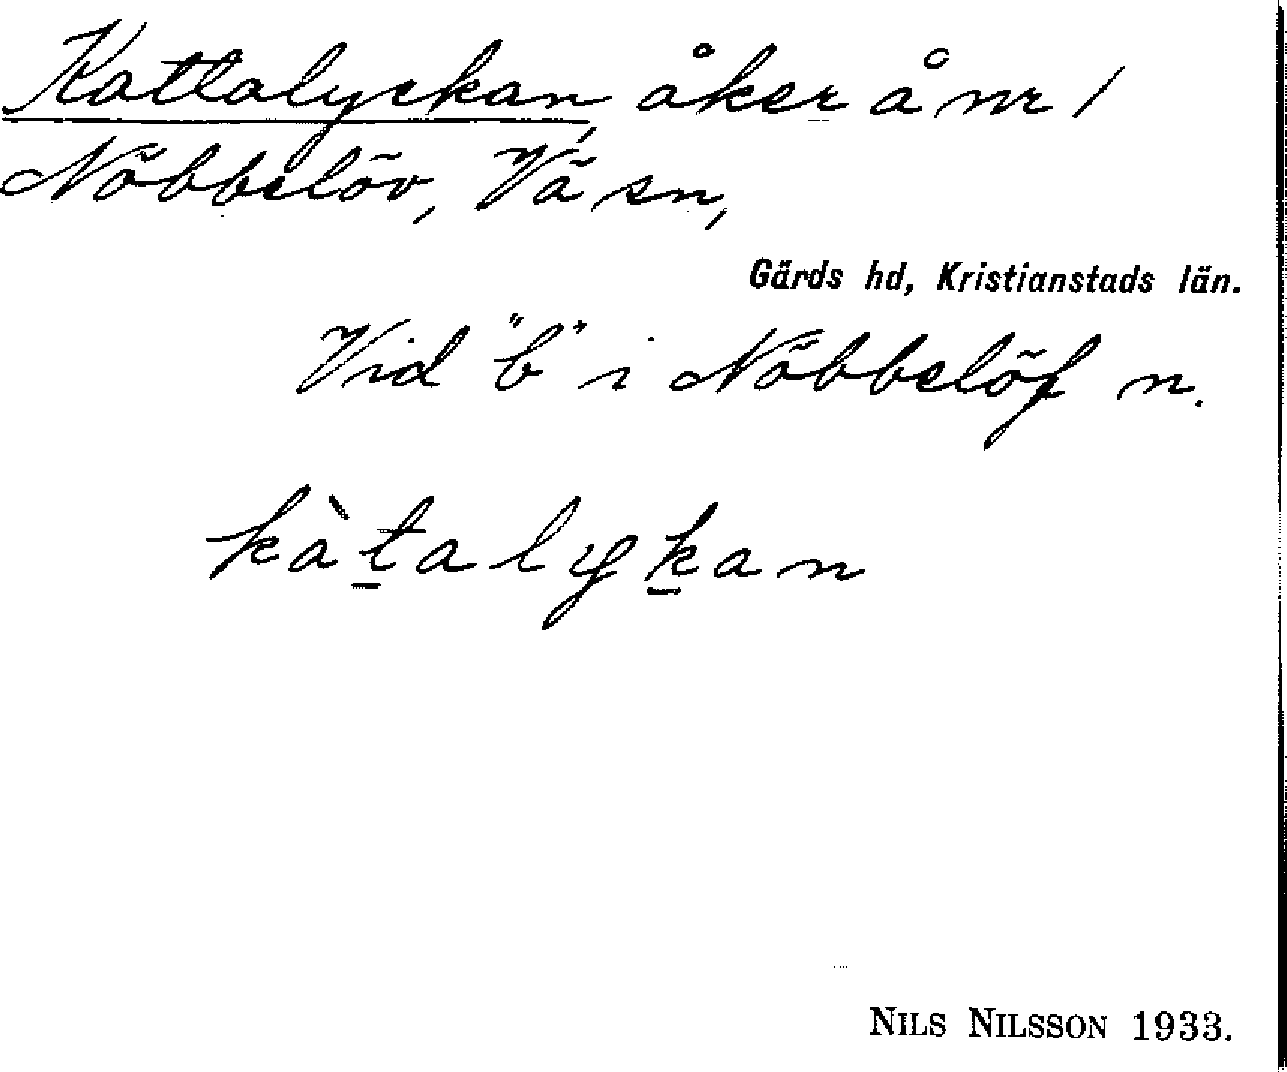 Kattalyckan, åker å nr 1
Nöbbelöv, Vä sn,
Gärds hd, Kristianstads län.
Vid "b" i Nöbbelöf n.
kàt̲alyk̲an
NILS NILSSON 1933.